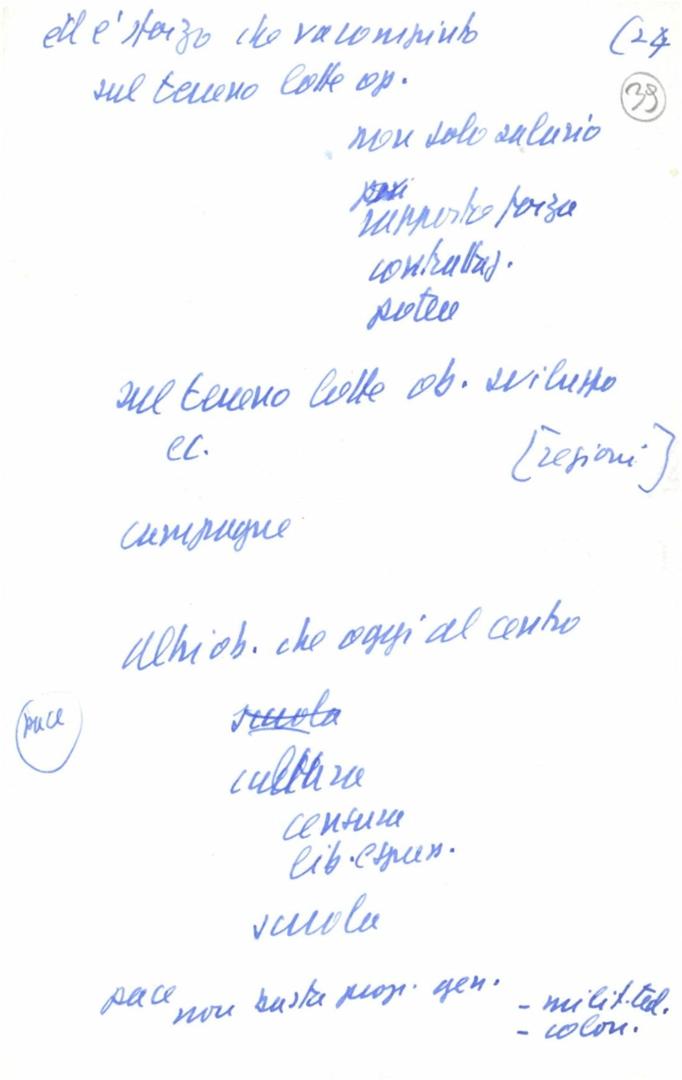 ed è sforzo che va compiuto (24
39
sul terreno lotte op.
non solo salario
rapporto forza
contrattaz.
potere
sul terreno lotte ob. sviluppo
ec. [regioni]
campagne
Altri ob. che oggi al centro
pace scuola
cultura
censura
lib. espress.
scuola
pace non basta prop. gen. - milit. ted.
- colon.